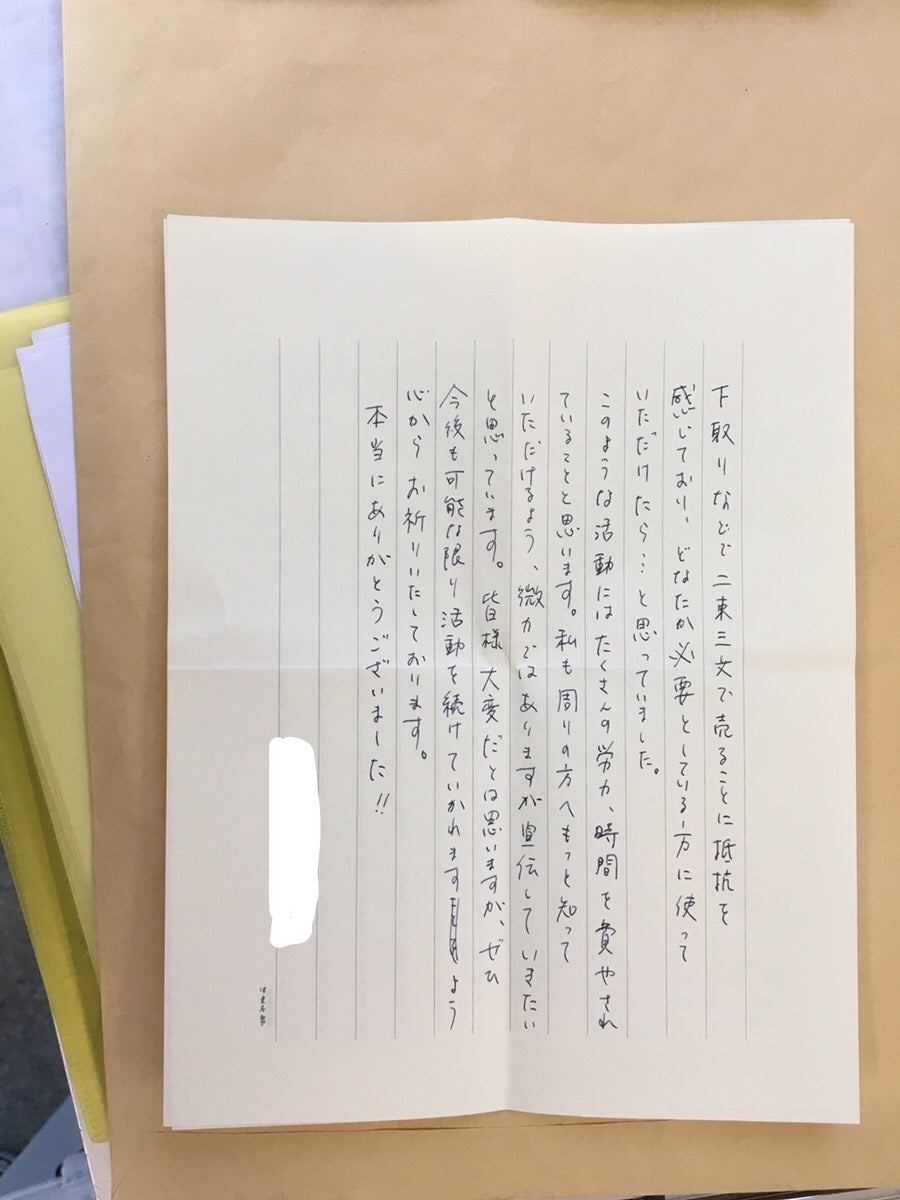 下取りなどで二束三文で売ることに抵抗を
感じており、どなたか必要としている方に使って
いただけたら…と思っていました。
このような活動にはたくさんの労力、時間を費やされ
ていることと思います。私も周りの方へもっと知って
いただけるよう、微力ではありますが宣伝していきたい
と思っています。皆様大変だとは思いますが、ぜひ
今後も可能な限り活動を続けていかれますよう
心からお祈りいたしております。
本当にありがとうございました!!